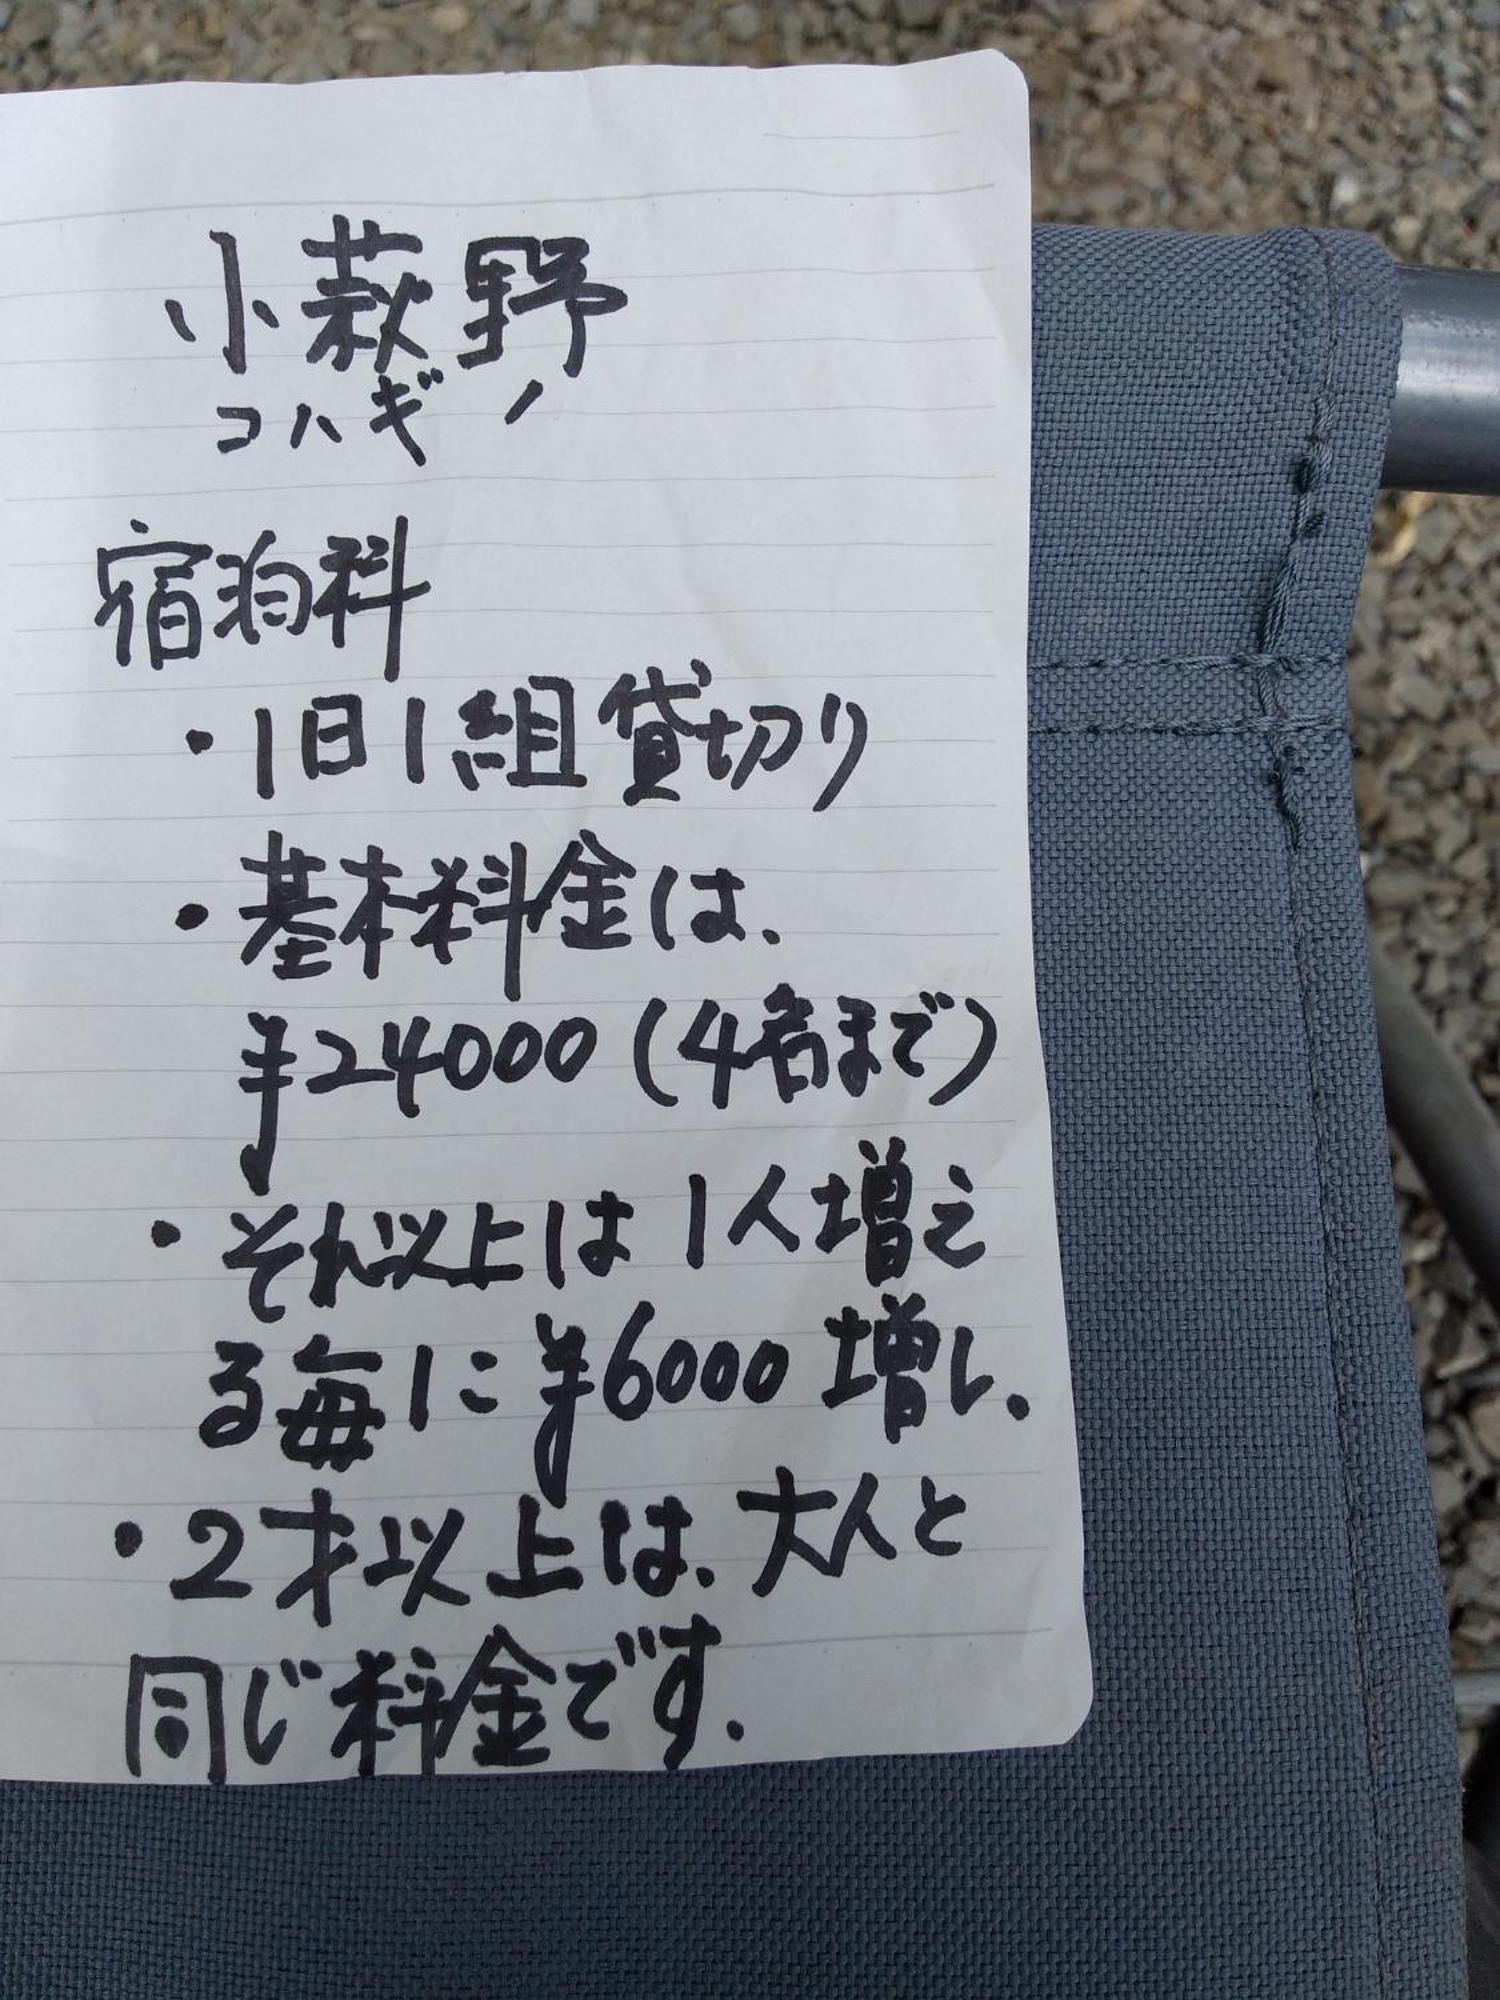 小萩野
コハギノ
宿泊料
・1日1組貸切り
・基本料金は、
¥24000(4名まで)
・それ以上は1人増え
る毎に¥6000増し。
・2才以上は、大人と
同じ料金です。